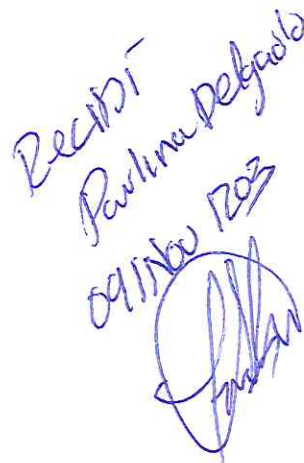 Recibí
Paulina Delgado
09/Nov/203